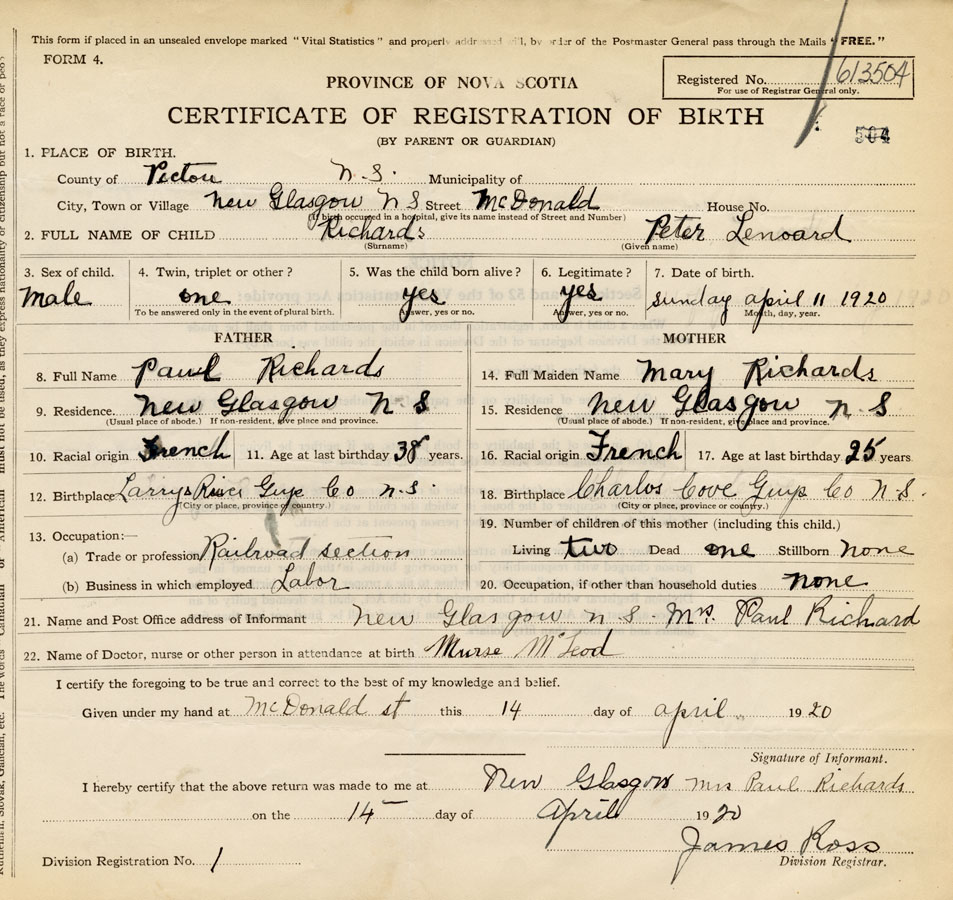 This form if placed in an unsealed envelope marked "Vital Statistics" and properly addressed will, by order of the Postmaster General pass through the Mails "FREE."
FORM 4.
PROVINCE OF NOVA SCOTIA
Registered No. 613504
For use of Registrar General only.
CERTIFICATE OF REGISTRATION OF BIRTH
504
(BY PARENT OR GUARDIAN)
1. PLACE OF BIRTH.
County of Pictou N.S. Municipality of
City, Town or Village New Glasgow N S Street McDonald House No.
(If birth occurred in a hospital, give its name instead of Street and Number)
2. FULL NAME OF CHILD Richards Peter Lenoard
(Surname) (Given name)
3. Sex of child. 4. Twin, triplet or other? 5. Was the child born alive? 6. Legitimate? 7. Date of birth.
Male one yes yes sunday april 11 1920
To be answered only in the event of plural birth. Answer, yes or no. Answer, yes or no. Month, day, year.
FATHER MOTHER
8. Full Name Paul Richards 14. Full Maiden Name Mary Richards
9. Residence. New Glasgow N S 15. Residence New Glasgow n S
(Usual place of abode.) If non-resident, give place and province. (Usual place of abode.) If non-resident, give place and province.
10. Racial origin French 11. Age at last birthday 38 years. 16. Racial origin French 17. Age at last birthday 25 years
12. Birthplace Larrys River Guys Co n.S. 18. Birthplace Charlos Cove Guys Co N.S.
(City or place, province or country.) (City or place, province or country.)
13. Occupation:— 19. Number of children of this mother (including this child.)
(a) Trade or profession Railroad section Living two Dead one Stillborn none
(b) Business in which employed Labor 20. Occupation, if other than household duties none
21. Name and Post Office address of Informant New Glasgow n S. Mrs. Paul Richard
22. Name of Doctor, nurse or other person in attendance at birth Murse McLeod
I certify the foregoing to be true and correct to the best of my knowledge and belief.
Given under my hand at McDonald st this 14 day of april 1920
Signature of Informant.
I hereby certify that the above return was made to me at New Glasgow Mrs Paul Richards
on the 14 day of April 1920
James Ross
Division Registration No. 1 Division Registrar.